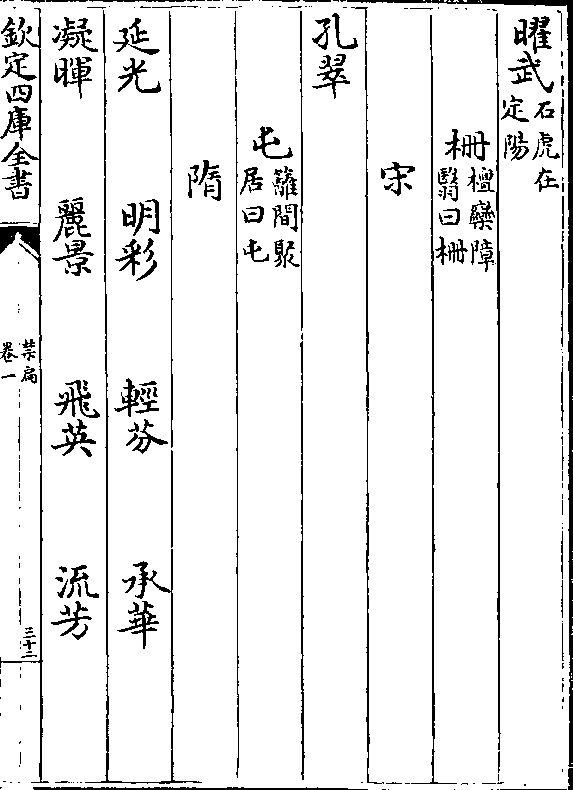 曜武石虎在定陽
柵檀欒障翳曰柵
宋
孔翠
屯籬間聚居曰屯
隋
延光 明彩 輕芬 承華
凝暉 麗景 飛英 流芳
欽定四庫全書
禁扁
卷一
三十二